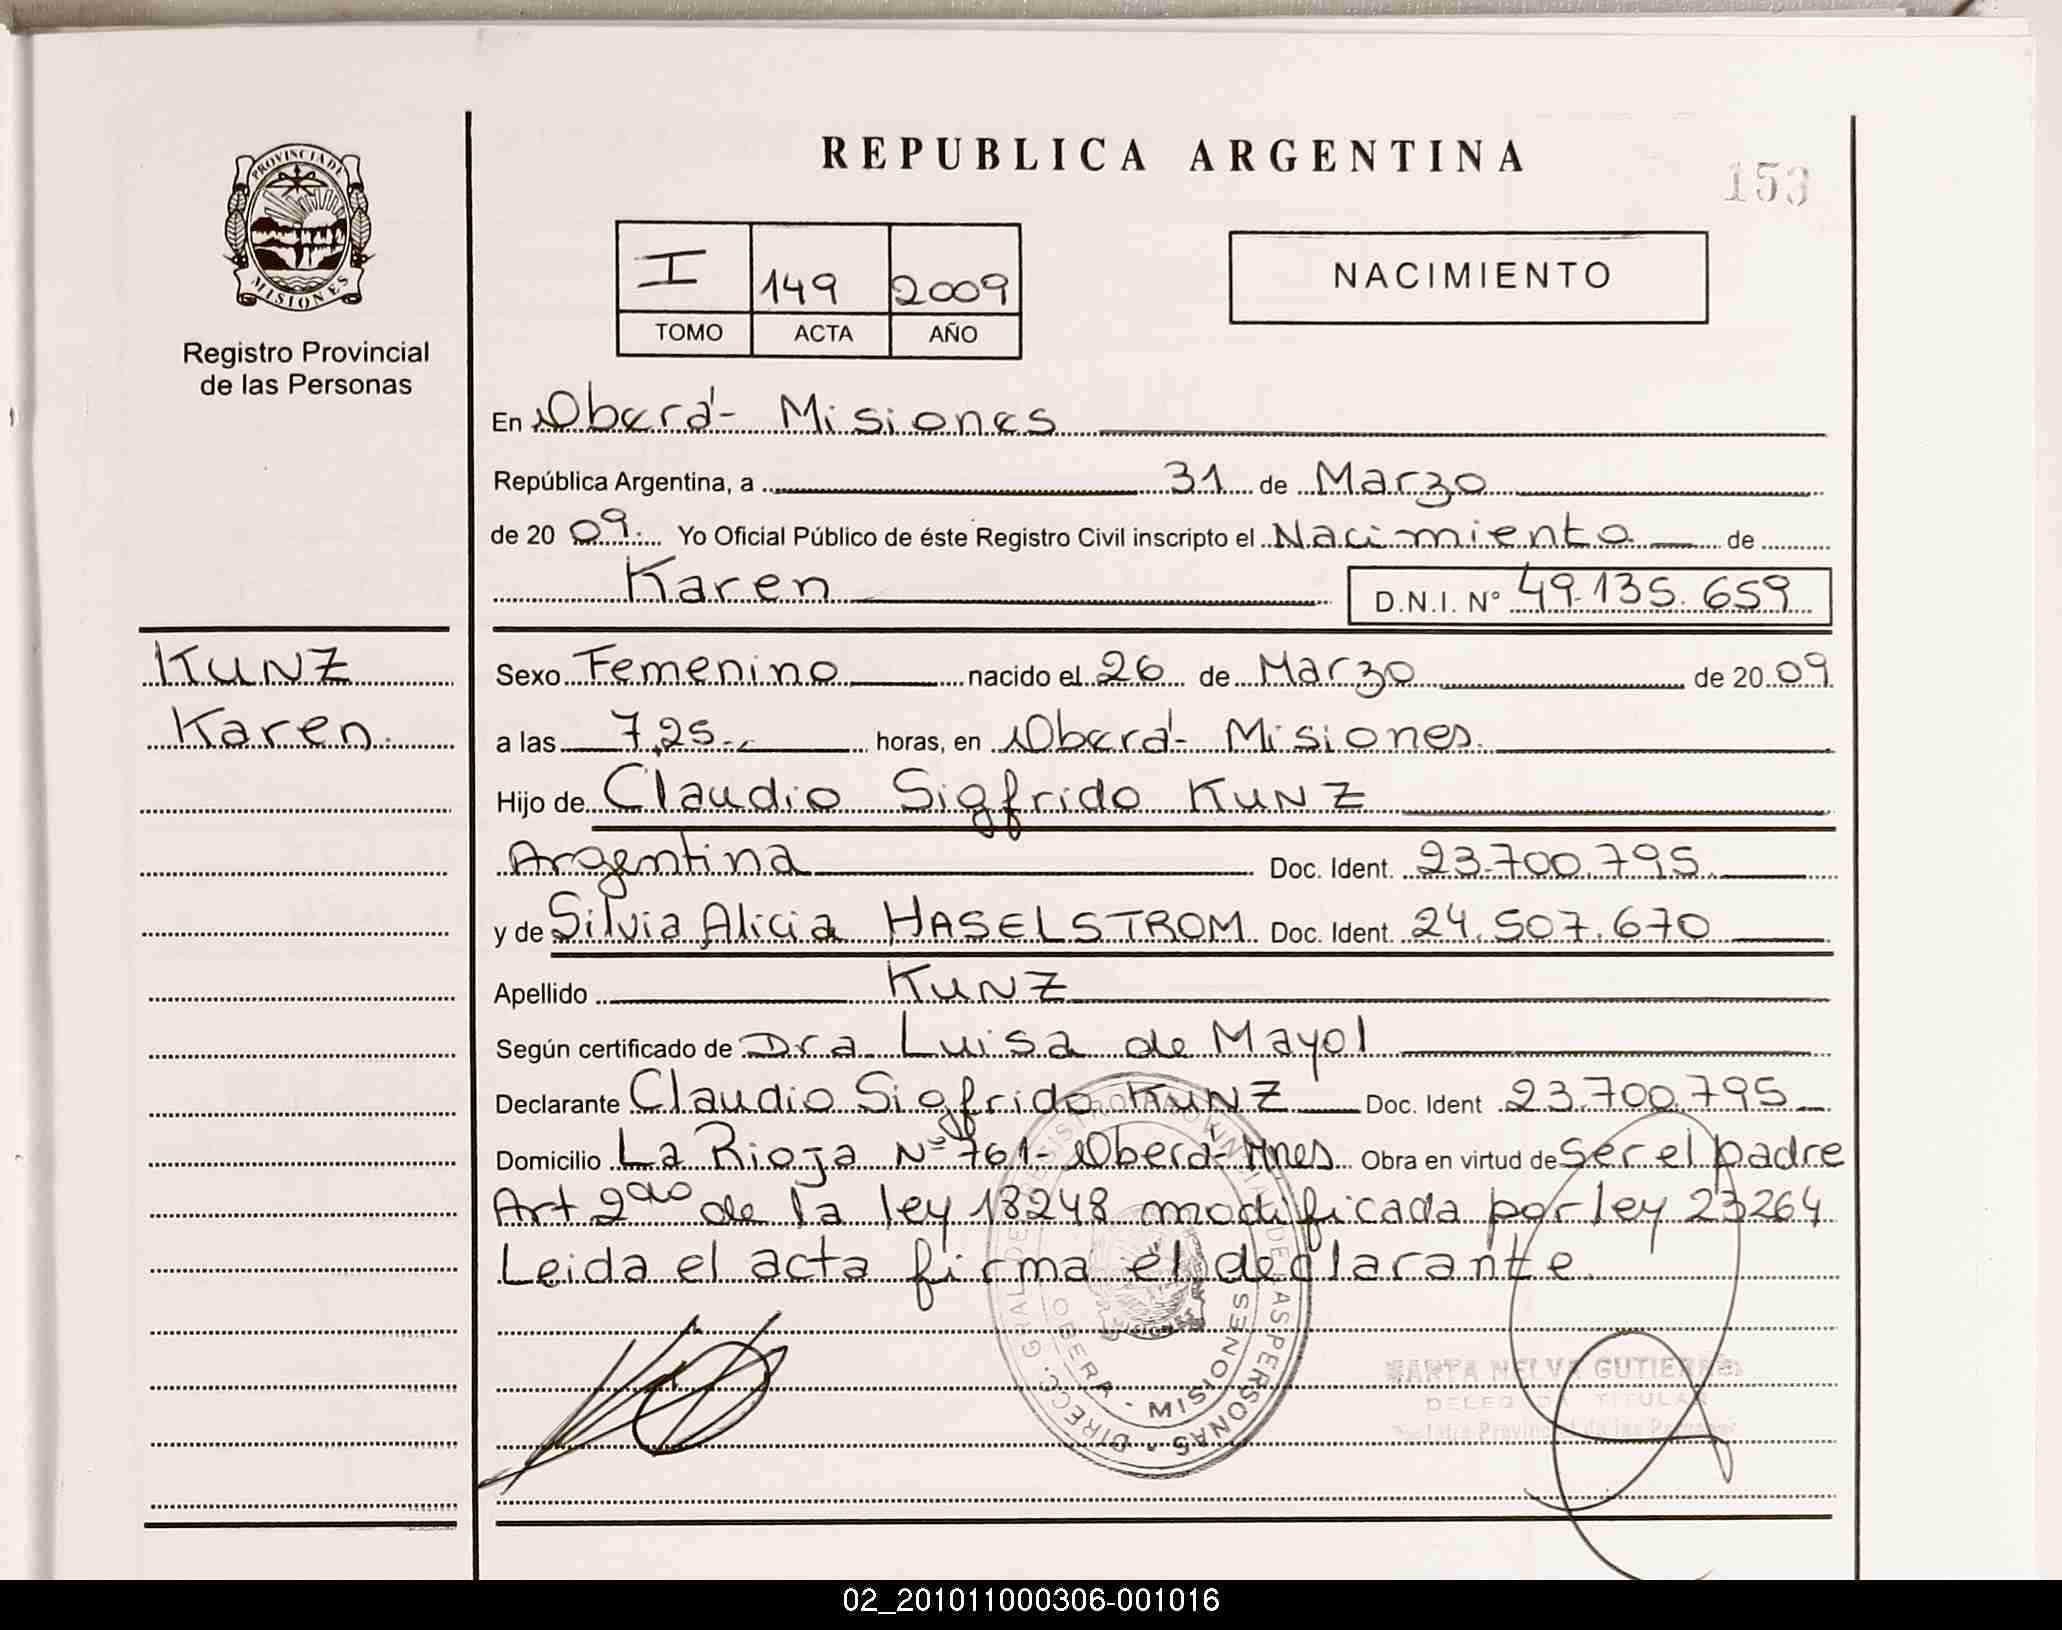 PROVINCIA DE
MISIONES
Registro Provincial
de las Personas
REPUBLICA ARGENTINA
153
I 149 2009
TOMO ACTA AÑO
NACIMIENTO
En Oberá - Misiones
República Argentina, a 31 de Marzo
de 20 09. Yo Oficial Público de éste Registro Civil inscripto el Nacimiento de
Karen D.N.I. N° 49.135.659
KUNZ
Karen.
Sexo Femenino nacido el 26 de Marzo de 20 09
a las 7,25 horas, en Oberá - Misiones.
Hijo de Claudio Sigfrido KUNZ
Argentina Doc. Ident. 23.700.795
y de Silvia Alicia HASELSTROM Doc. Ident. 24.507.670
Apellido KUNZ
Según certificado de Dra Luisa de Mayol
Declarante Claudio Sigfrido KUNZ Doc. Ident 23.700.795
Domicilio La Rioja Nº 761 - Oberá - Mnes Obra en virtud de Ser el padre
Art 2do de la ley 18248 modificada por ley 23264
Leida el acta firma el declarante.
DIRECC. GRAL DE REGISTRO PROVINCIAL DE LAS PERSONAS
OBERA - MISIONES
MARTA NELVA GUTIERREZ
DELEGADA TITULAR
Registro Provincial de las Personas
02_201011000306-001016